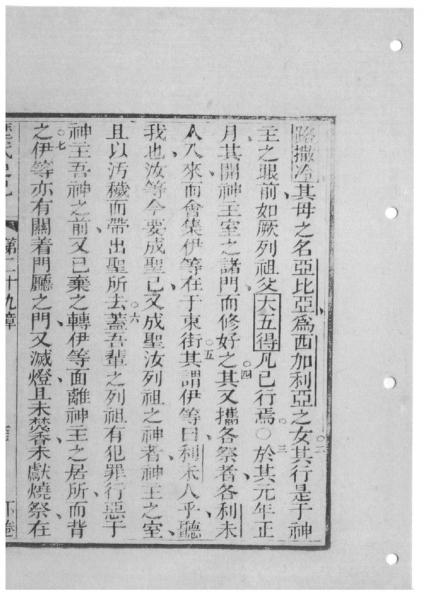 路撒冷其母之名亞比亞爲西加利亞之女其行是于神
主之眼前如厥列祖父大五得凡已行焉○於其元年正
月其開神主室之諸門而修好之其又攜各祭者各利未
人入來而會集伊等在于東街其謂伊等曰利未人乎聽
我也汝等今要成聖己又成聖汝列祖之神者神主之室
且以汚穢而帶出聖所去蓋吾輩之列祖有犯罪行惡于
神主吾神之前又已棄之轉伊等面離神主之居所而背
之伊等亦有關着門廳之門又滅燈且未焚香未獻燒祭在
第二十九章
下卷